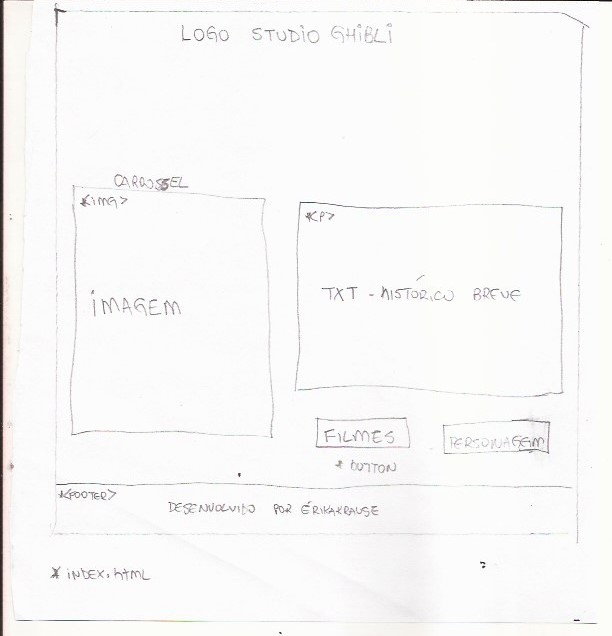 LOGO STUDIO GHIBLI
CAROSSEL
*<IMG>
IMAGEM
*<P>
TXT - HISTÓRICO BREVE
FILMES
PERSONAGEM
* BUTTON
*<FOOTER>
DESENVOLVIDO POR ÉRIKAKRAUSE
* INDEX.HTML